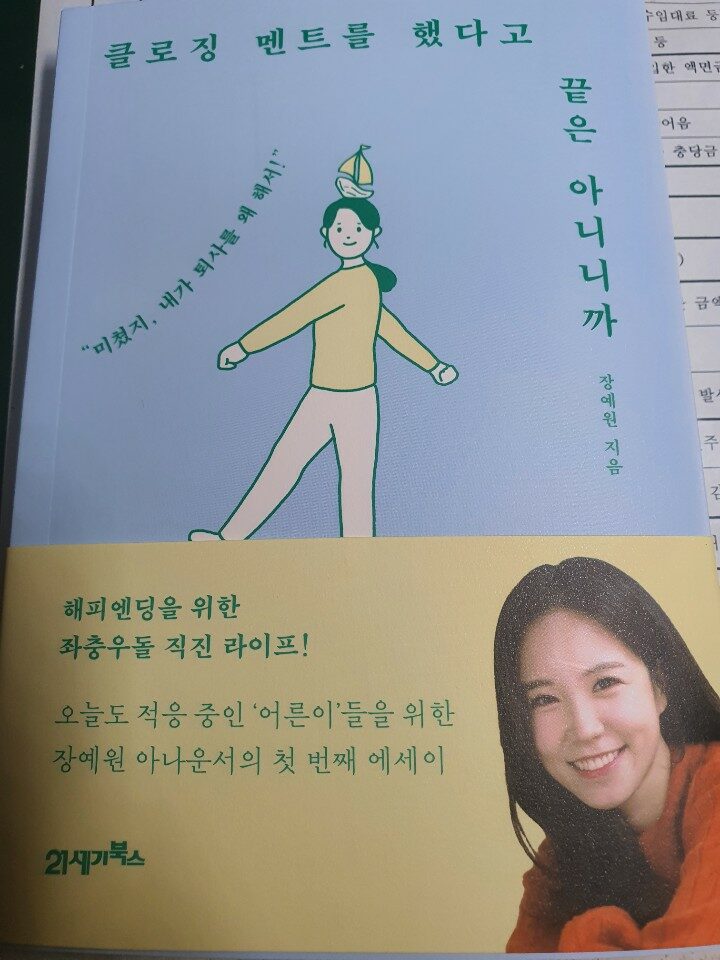 클로징 멘트를 했다고
끝은 아니니까
"미쳤지, 내가 퇴사를 왜 해서!"
장예원 지음
해피엔딩을 위한
좌충우돌 직진 라이프!
오늘도 적응 중인 '어른이'들을 위한
장예원 아나운서의 첫 번째 에세이
21세기북스
수입대료 등
등
입한 액면금
어음
충당금
금액
발
주